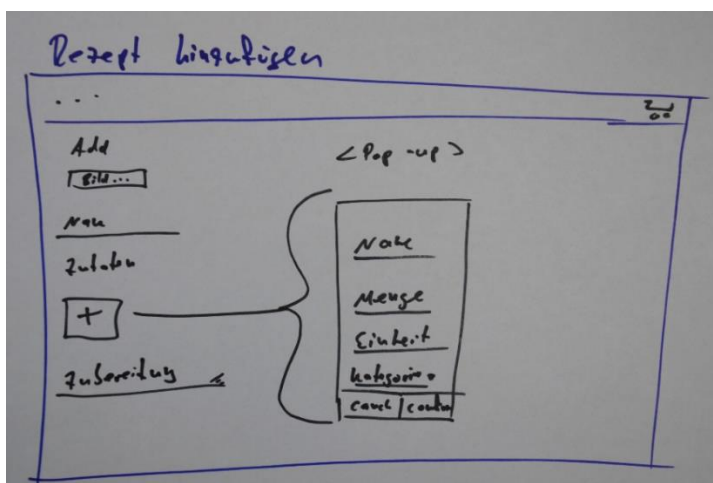 Rezept hinzufügen
...
Add
Bild...
Name
Zutaten
+
Zubereitung
<Pop-up>
Name
Menge
Einheit
Kategorie
cancel